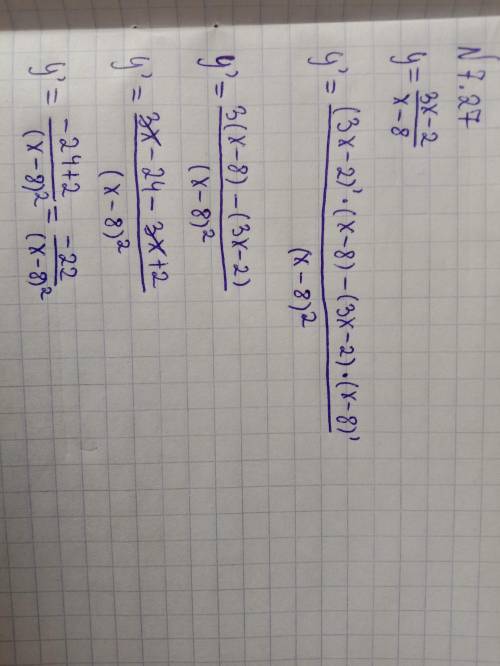 N 7.27
y = (3x-2)/(x-8)
y' = ((3x-2)'·(x-8)-(3x-2)·(x-8)')/(x-8)²
y' = (3(x-8)-(3x-2))/(x-8)²
y' = (3x-24-3x+2)/(x-8)²
y' = (-24+2)/(x-8)² = -22/(x-8)²